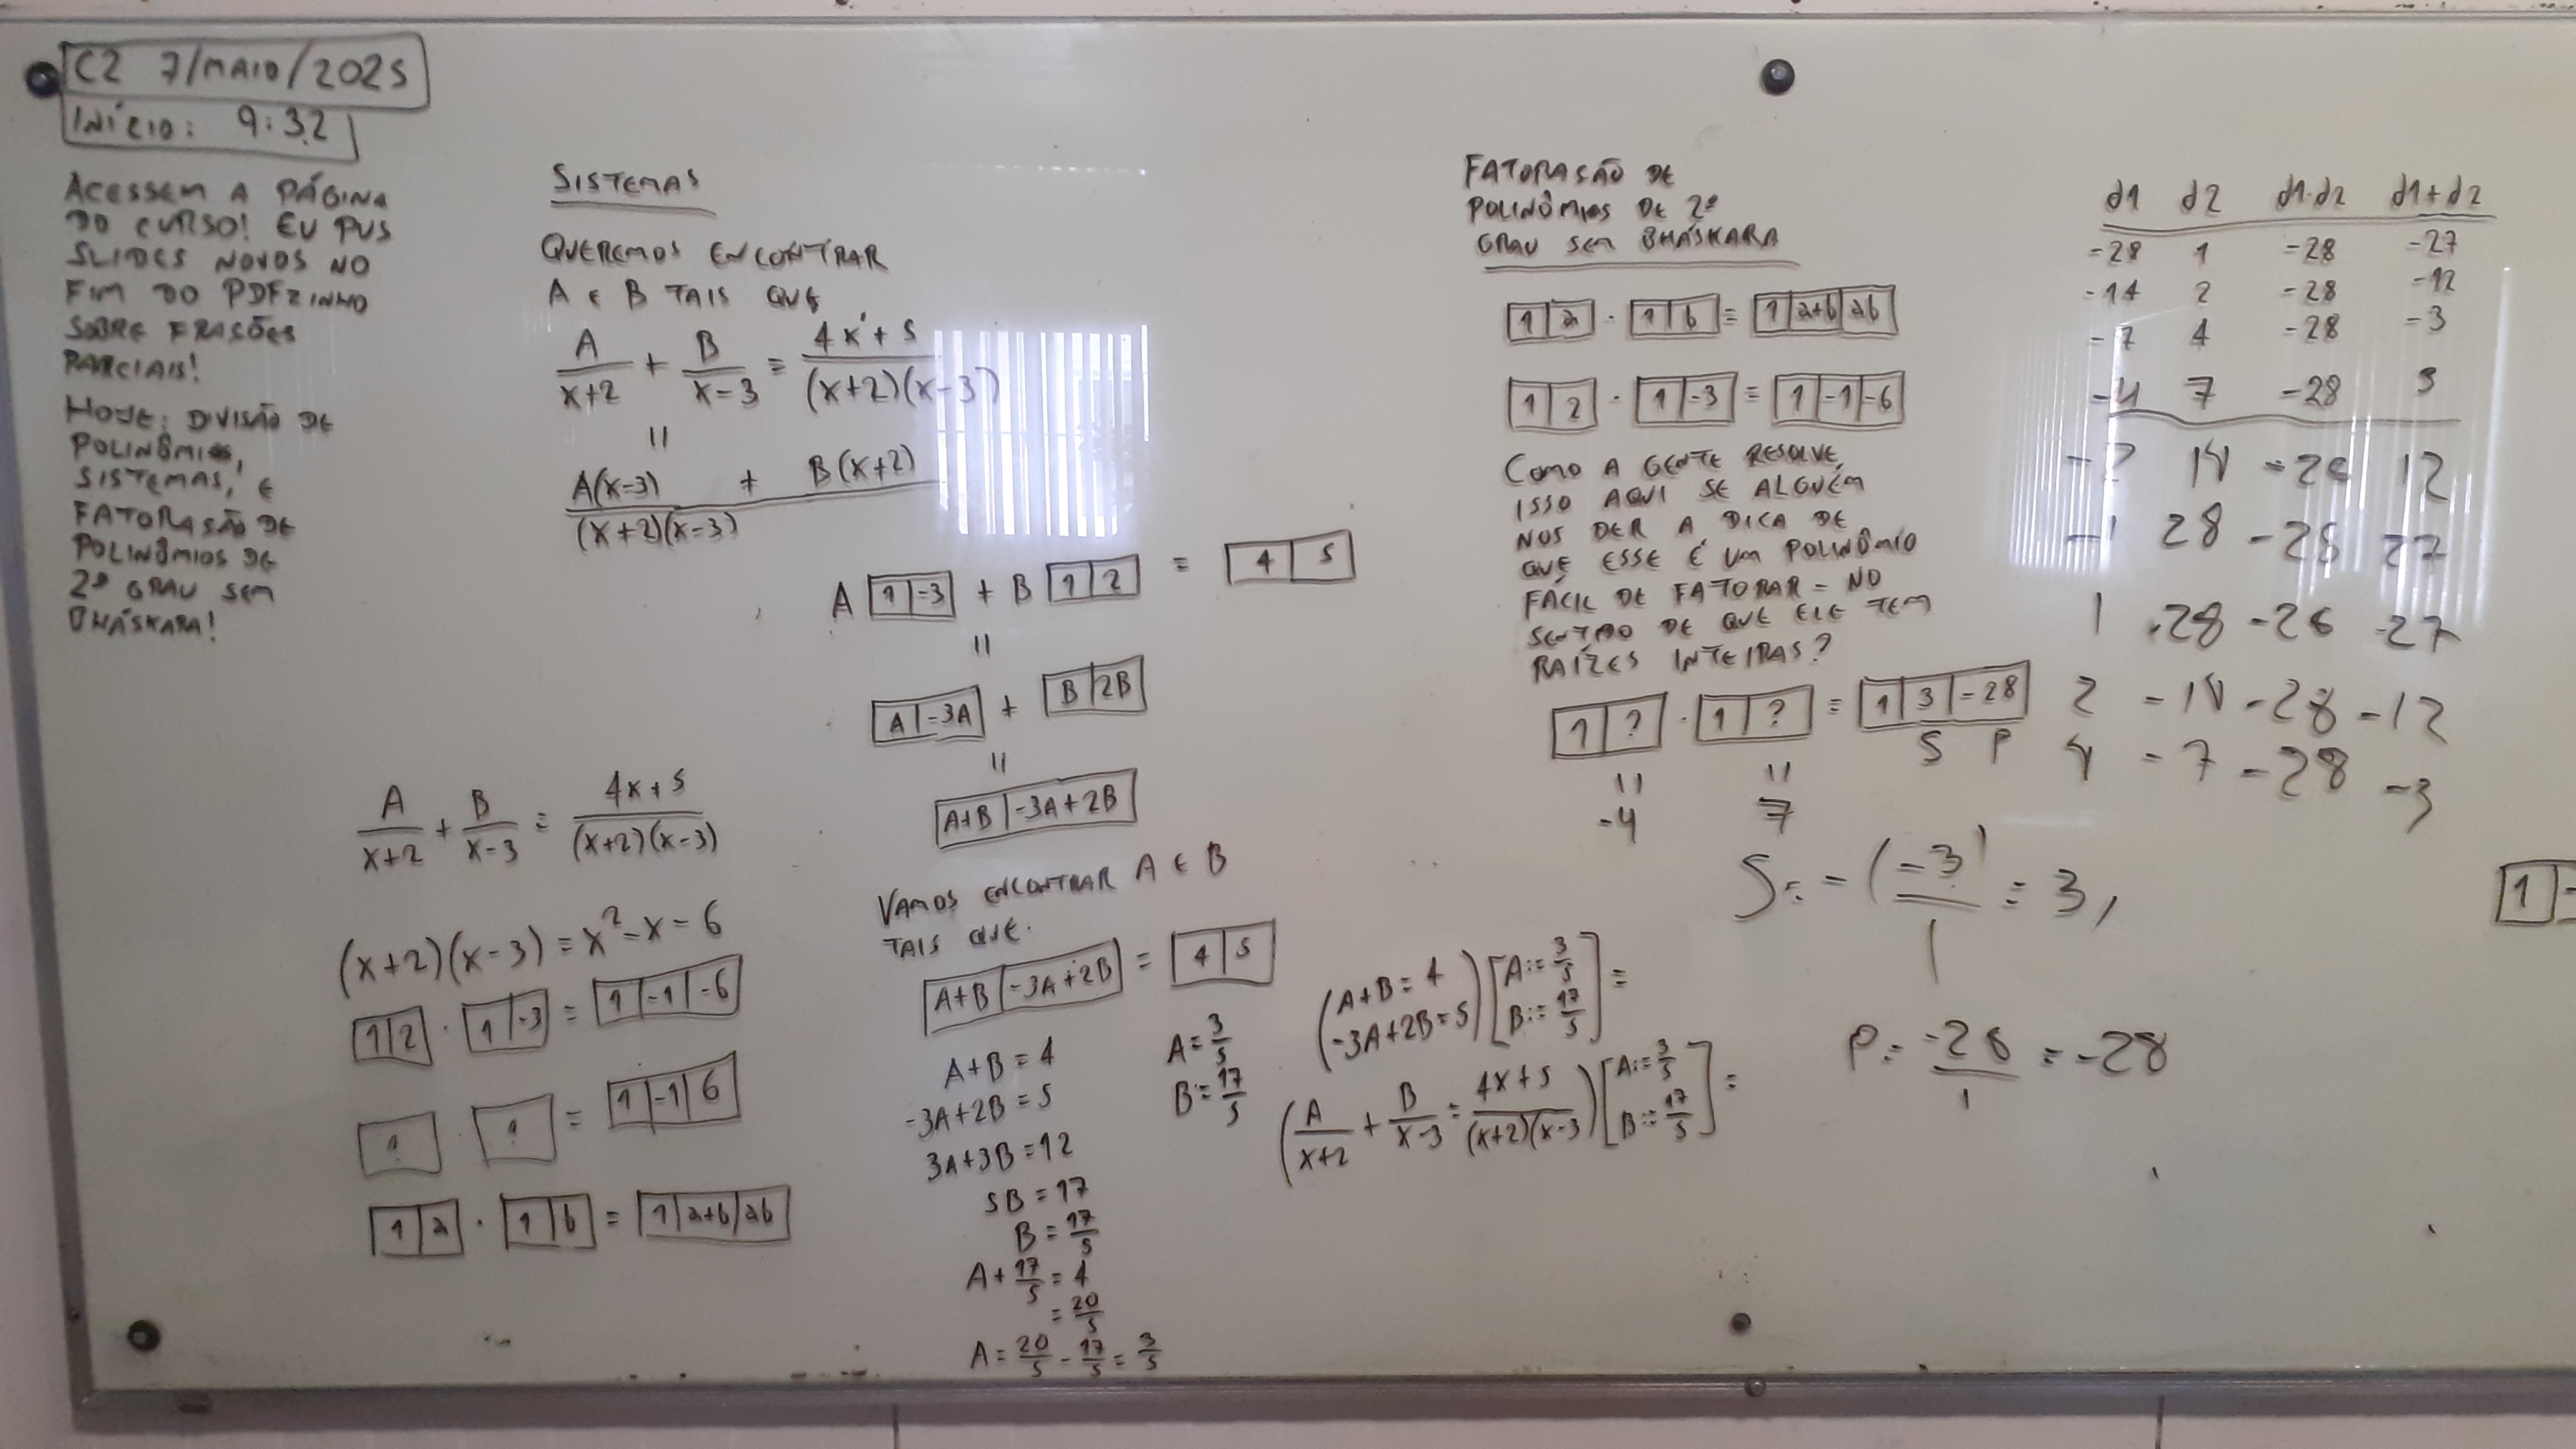 C2 7/MAIO/2025
INÍCIO: 9:32
ACESSEM A PÁGINA
DO CURSO! EU PUS
SLIDES NOVOS NO
FIM DO PDFZINHO
SOBRE FRAÇÕES
PARCIAIS!
HOJE: DIVISÃO DE
POLINÔMIOS,
SISTEMAS, E
FATORAÇÃO DE
POLINÔMIOS DE
2º GRAU SEM
BHÁSKARA!
A/(x+2) + B/(x-3) = (4x+5)/((x+2)(x-3))
(x+2)(x-3) = x²-x-6
[1|2] · [1|-3] = [1|-1|-6]
[?] · [?] = [1|-1|6]
[1|a] · [1|b] = [1|a+b|ab]
SISTEMAS
QUEREMOS ENCONTRAR
A E B TAIS QUE
A/(x+2) + B/(x-3) = (4x+5)/((x+2)(x-3))
=
(A(x-3) + B(x+2))/((x+2)(x-3))
A [1|-3] + B [1|2] = [4|5]
=
[A|-3A] + [B|2B]
=
[A+B|-3A+2B]
VAMOS ENCONTRAR A E B
TAIS QUE:
[A+B|-3A+2B] = [4|5]
A+B = 4
-3A+2B = 5
3A+3B = 12
5B = 17
B = 17/5
A + 17/5 = 4
= 20/5
A = 20/5 - 17/5 = 3/5
A = 3/5
B = 17/5
(A+B = 4
-3A+2B = 5) [A := 3/5
B := 17/5] =
(A/(x+2) + B/(x-3) = (4x+5)/((x+2)(x-3))) [A := 3/5
B := 17/5] =
FATORAÇÃO DE
POLINÔMIOS DE 2º
GRAU SEM BHÁSKARA
[1|a] · [1|b] = [1|a+b|ab]
[1|2] · [1|-3] = [1|-1|-6]
COMO A GENTE RESOLVE
ISSO AQUI SE ALGUÉM
NOS DER A DICA DE
QUE ESSE É UM POLINÔMIO
FÁCIL DE FATORAR - NO
SENTIDO DE QUE ELE TEM
RAÍZES INTEIRAS?
[1|?] · [1|?] = [1|3|-28]
S P
= =
-4 7
S = -(-3)/1 = 3,
P = -28/1 = -28
d1 d2 d1·d2 d1+d2
-28 1 -28 -27
-14 2 -28 -12
-7 4 -28 -3
-4 7 -28 3
-2 14 -28 12
-1 28 -28 27
1 -28 -28 -27
2 -14 -28 -12
4 -7 -28 -3
[1|-